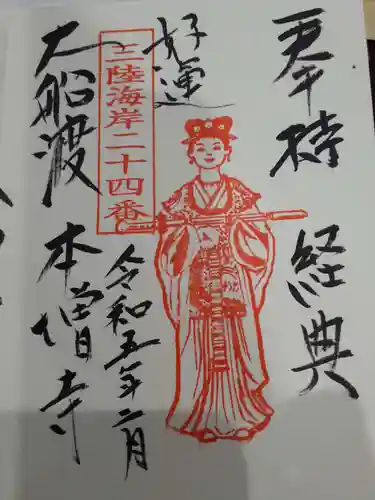 奉拝
経典
好運
三陸海岸二十四番
令和五年二月
大船渡
本増寺